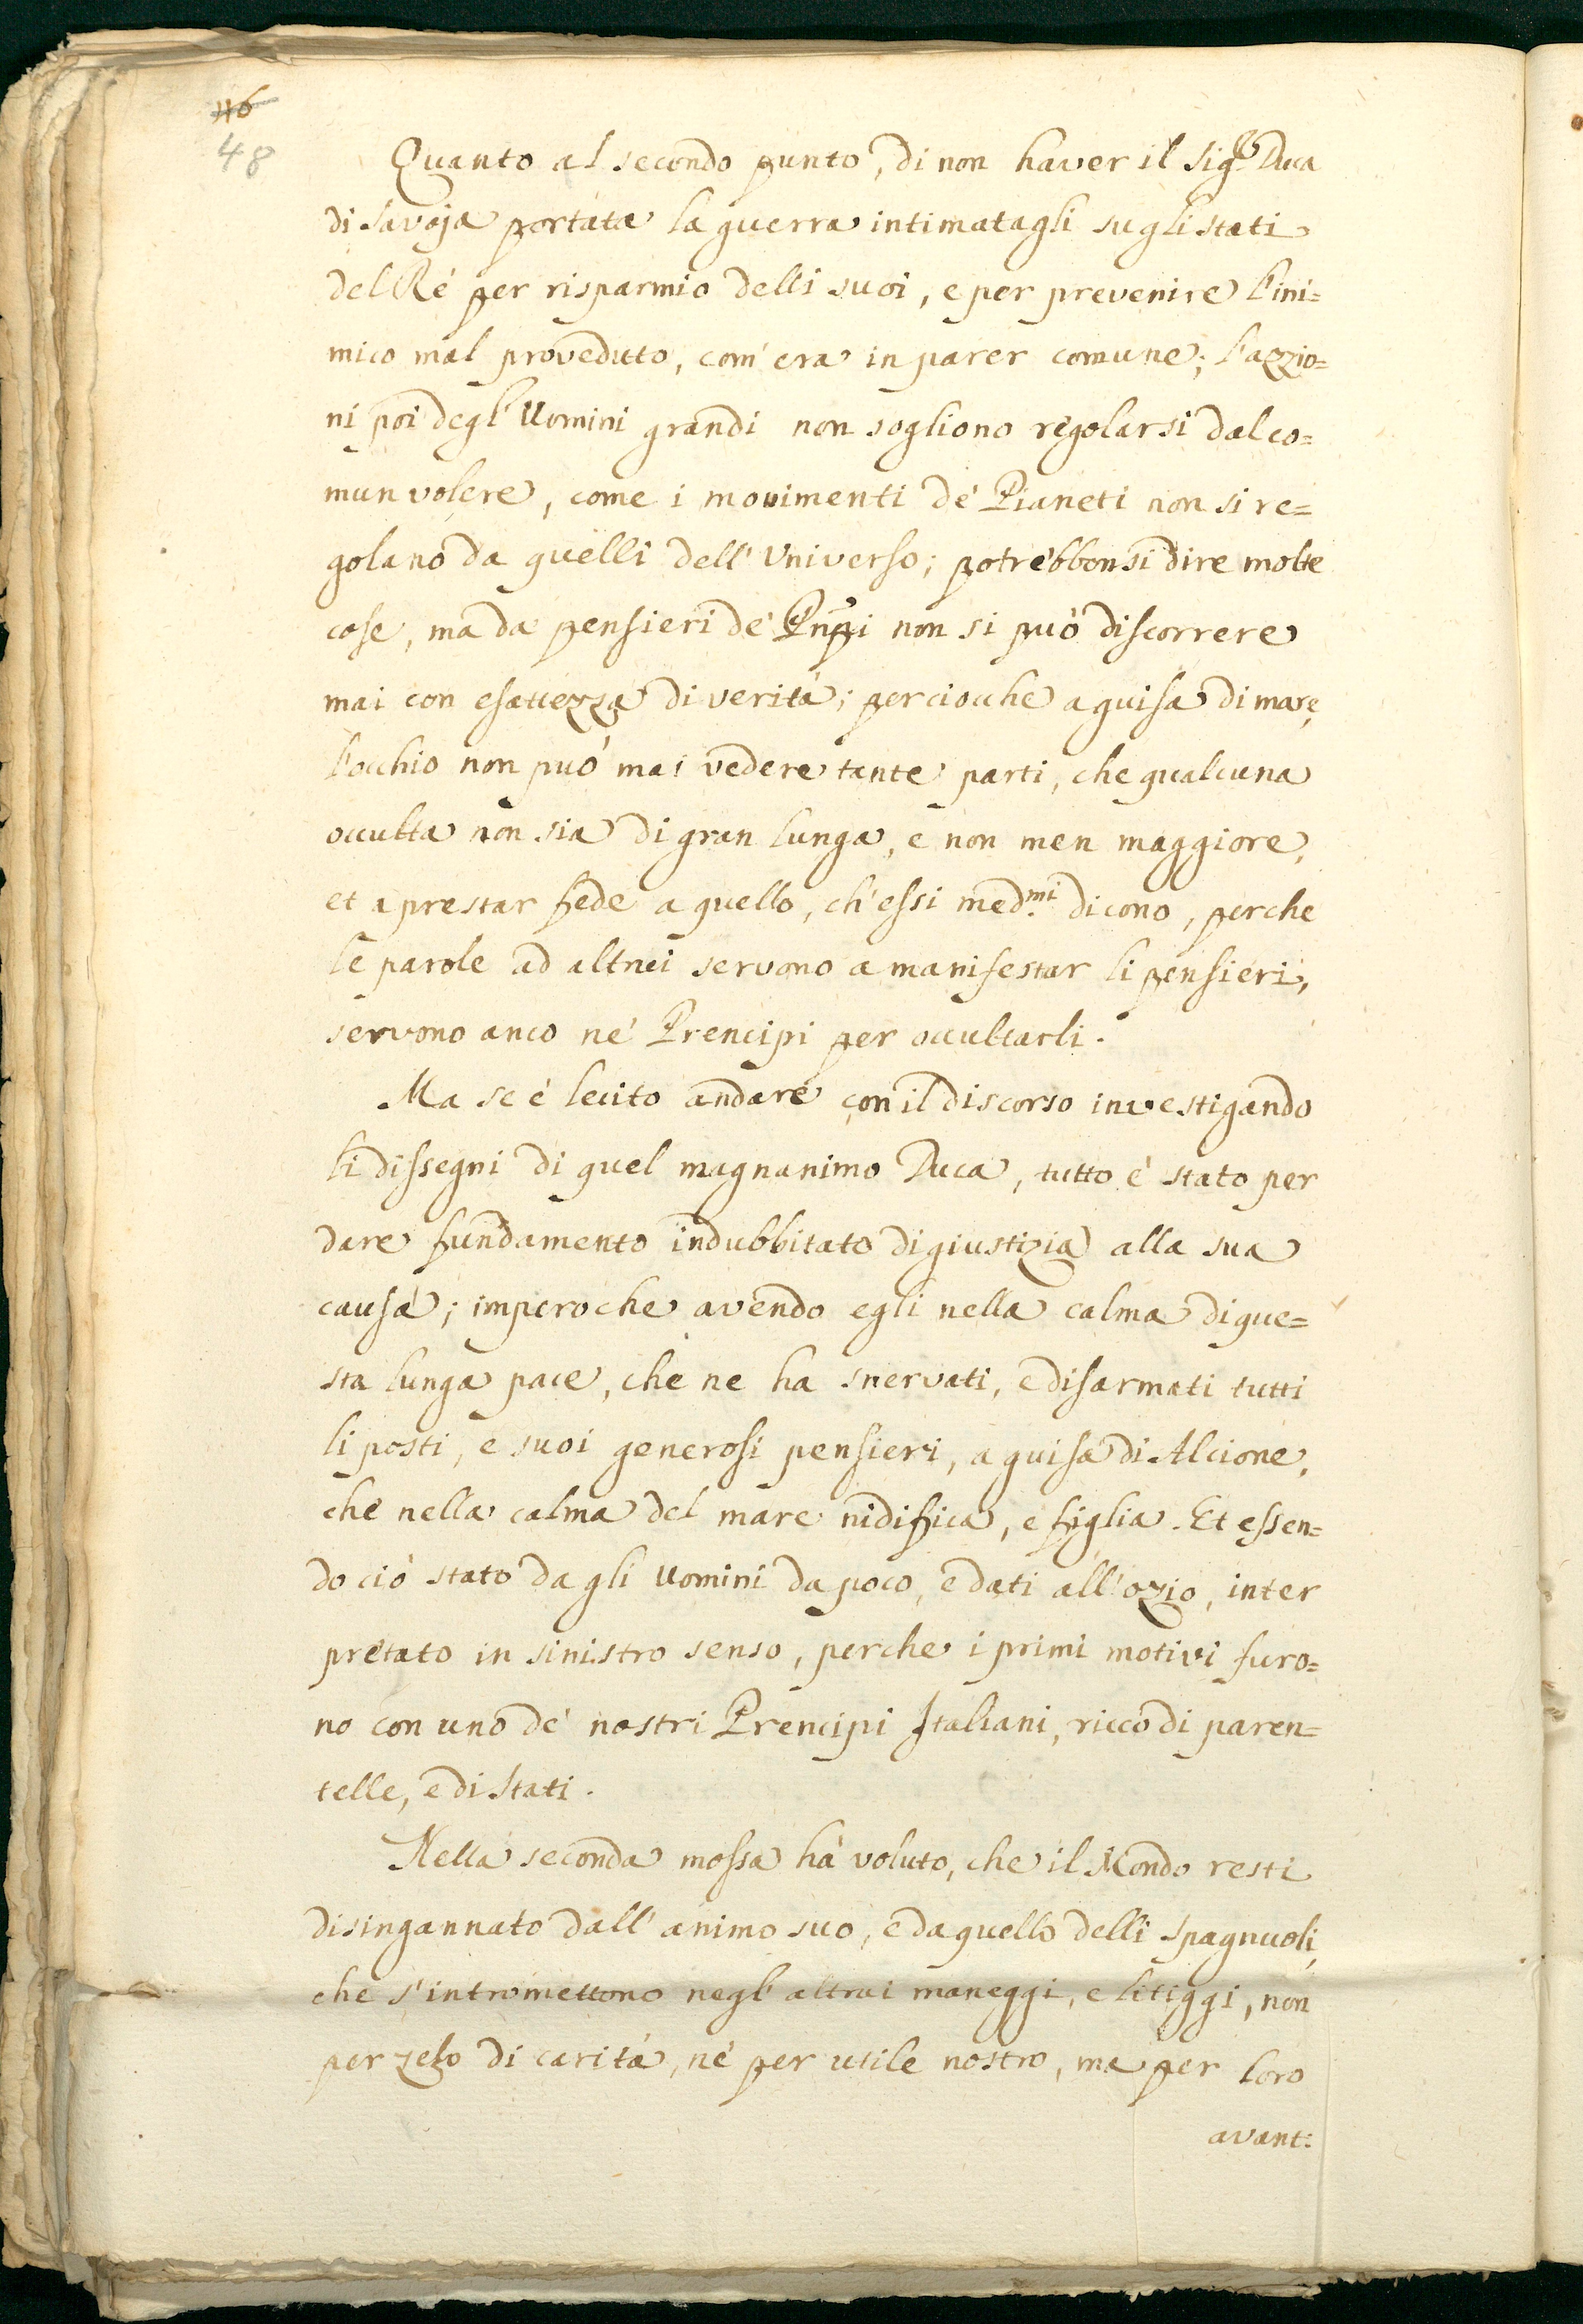 116
48
Quanto al secondo punto, di non haver il Sig.r Duca
di Savoja portata la guerra intimatagli sugli stati
del Ré per risparmio delli suoi, e per prevenire l'ini=
mico mal proveduto, com'era in parer comune; l'azzio=
ni poi degl'Uomini grandi non sogliono regolarsi dal co=
mun volere, come i movimenti de' Pianeti non si re=
golano da quelli dell'Universo; potrebbonsi dire molte
cose, ma da pensieri de' Pnpi non si può discorrere
mai con esattezza di verità; perciocche a guisa di mare,
l'occhio non può mai vedere tante parti, che qualcuna
occulta non sia di gran lunga, e non men maggiore,
et a prestar fede a quello, ch'essi med.mi dicono, perche
le parole ad altrui servono a manifestar li pensieri,
servono anco ne' Prencipi per occultarli.
Ma se é lecito andare con il discorso investigando
li dissegni di quel magnanimo Duca, tutto é stato per
dare fundamento indubbitato di giustizia alla sua
causa; imperoche avendo egli nella calma di que=
sta lunga pace, che ne ha snervati, e disarmati tutti
li posti, e suoi generosi pensieri, a guisa di Alcione,
che nella calma del mare nidifica, e figlia. Et essen=
do ciò stato da gli Uomini da poco, e dati all'ozio, inter
pretato in sinistro senso, perche i primi motivi furo=
no con uno de' nostri Prencipi Italiani, ricco di paren=
telle, e di Stati.
Nella seconda mossa hà voluto, che il Mondo resti
disingannato dall'animo suo, e da quello delli Spagnuoli,
che s'intromettono negl'altrui maneggi, e litiggi, non
per zelo di carità, né per utile nostro, ma per loro
avant: